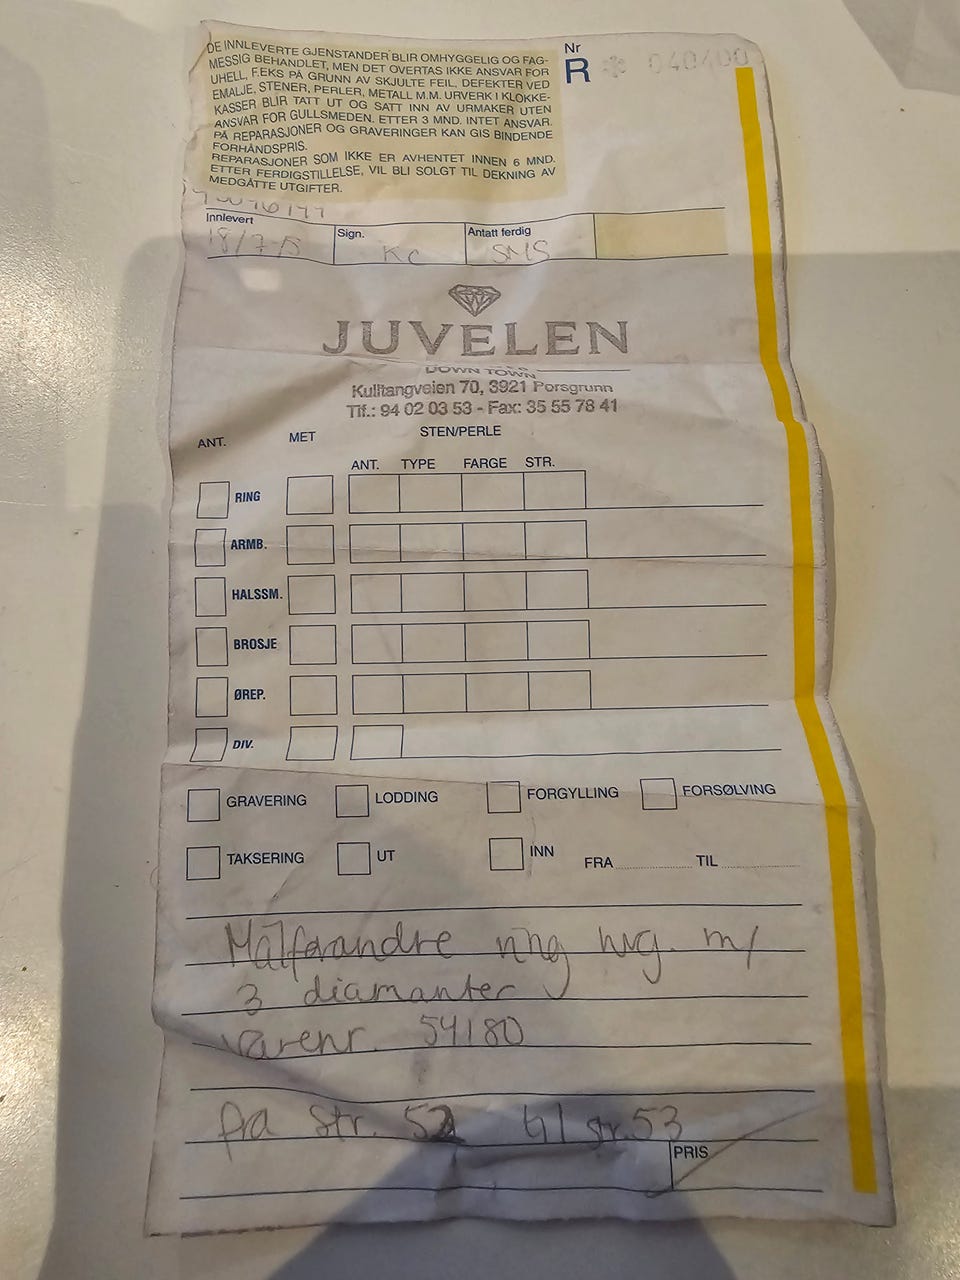 DE INNLEVERTE GJENSTANDER BLIR OMHYGGELIG OG FAG-
MESSIG BEHANDLET, MEN DET OVERTAS IKKE ANSVAR FOR
UHELL, F.EKS PÅ GRUNN AV SKJULTE FEIL, DEFEKTER VED
EMALJE, STENER, PERLER, METALL M.M. URVERK I KLOKKE-
KASSER BLIR TATT UT OG SATT INN AV URMAKER UTEN
ANSVAR FOR GULLSMEDEN. ETTER 3 MND. INTET ANSVAR.
PÅ REPARASJONER OG GRAVERINGER KAN GIS BINDENDE
FORHÅNDSPRIS.
REPARASJONER SOM IKKE ER AVHENTET INNEN 6 MND.
ETTER FERDIGSTILLELSE, VIL BLI SOLGT TIL DEKNING AV
MEDGÅTTE UTGIFTER.
Nr
R * 040400
Innlevert Sign. Antatt ferdig
18/7-15 KC SMS
JUVELEN
DOWN TOWN
Kulltangveien 70, 3921 Porsgrunn
Tlf.: 94 02 03 53 - Fax: 35 55 78 41
ANT. MET STEN/PERLE
ANT. TYPE FARGE STR.
RING
ARMB.
HALSSM.
BROSJE
ØREP.
DIV.
GRAVERING LODDING FORGYLLING FORSØLVING
TAKSERING UT INN FRA TIL
Målforandre ring hvg. m/
3 diamanter
varenr. 54180
fra str. 52 til str. 53
PRIS